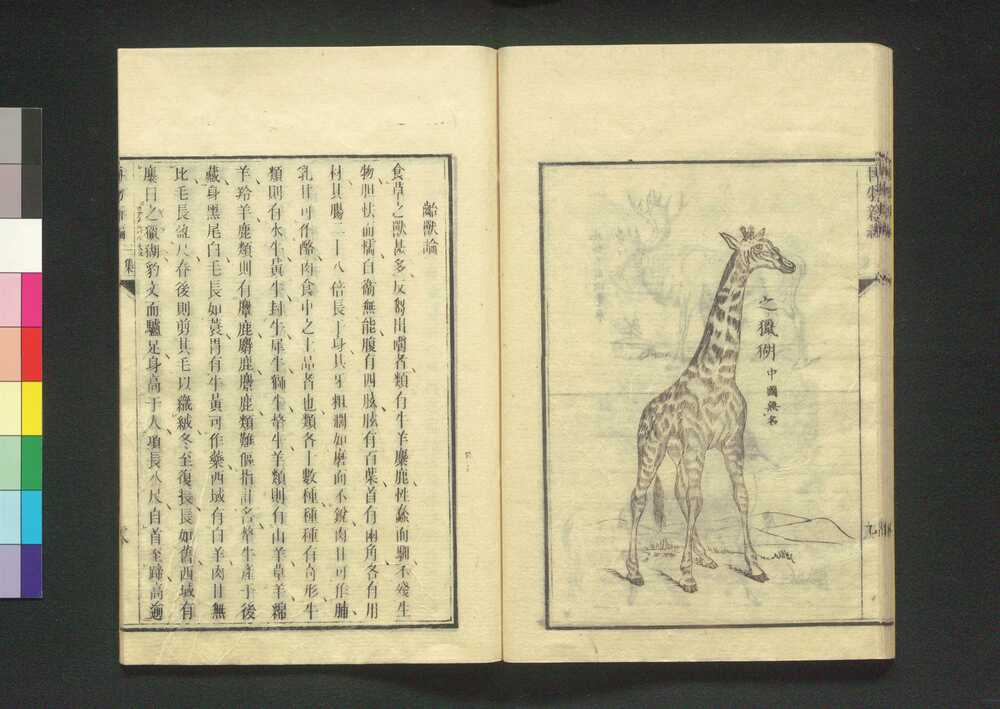 之獵猢
中國無名
九
齝獸論
食草之獸甚多反芻出嚼者類有牛羊麋鹿性蠢而馴不殘生
物胆怯而懦自衛無能腹有四胘胘有百葉首有兩角各有用
材其腸二十八倍長于身其牙粗濶如磨而不銳肉甘可作脯
乳甘可作酪肉食中之上品者也類各十數種種種有奇形牛
類則有水牛黃牛封牛犀牛獅牛犛牛羊類則有山羊草羊綿
羊羚羊鹿類則有麞鹿麝鹿麋鹿類難僂指計名犛牛產于後
藏身黑尾白毛長如蓑胃有牛黃可作藥西域有白羊肉甘無
比毛長盈尺春後則剪其毛以織絨冬至復長長如舊西域有
麋曰之獵猢豹文而驢足身高于人項長八尺自首至蹄高逾
三集